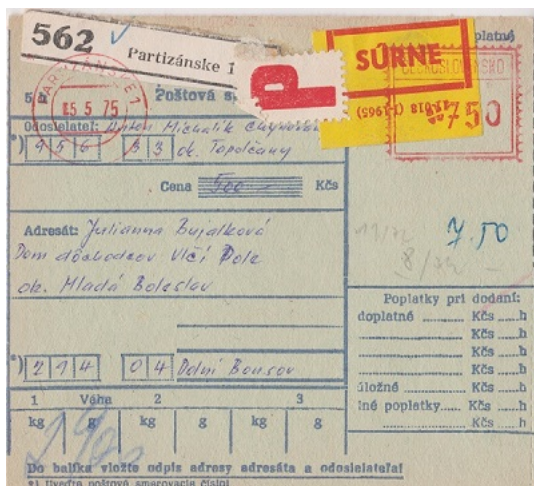 562
Partizánske 1
P
SÚRNE
platné
PARTIZÁNSKE 1
15 5 75
ČESKOSLOVENSKO
750
11-018 (I-1965)
Poštová
Odosielateľ: Anton Michalík Chynorany
*) 956 33 ok. Topoľčany
Cena 500 - Kčs
7.50
8/74 -
Adresát: Julianna Bujalková
Dom dôchodcov Vlčí Pole
ok. Mladá Boleslav
*) 294 04 Dolní Bousov
Poplatky pri dodaní:
doplatné ........ Kčs ....h
........ Kčs ....h
........ Kčs ....h
........ Kčs ....h
úložné ........ Kčs ....h
iné poplatky..... Kčs ....h
........ Kčs ....h
1 Váha 2 3
kg g kg g kg g
Do balíka vložte odpis adresy adresáta a odosielateľa!
*) Uveďte poštové smerovacie číslo!